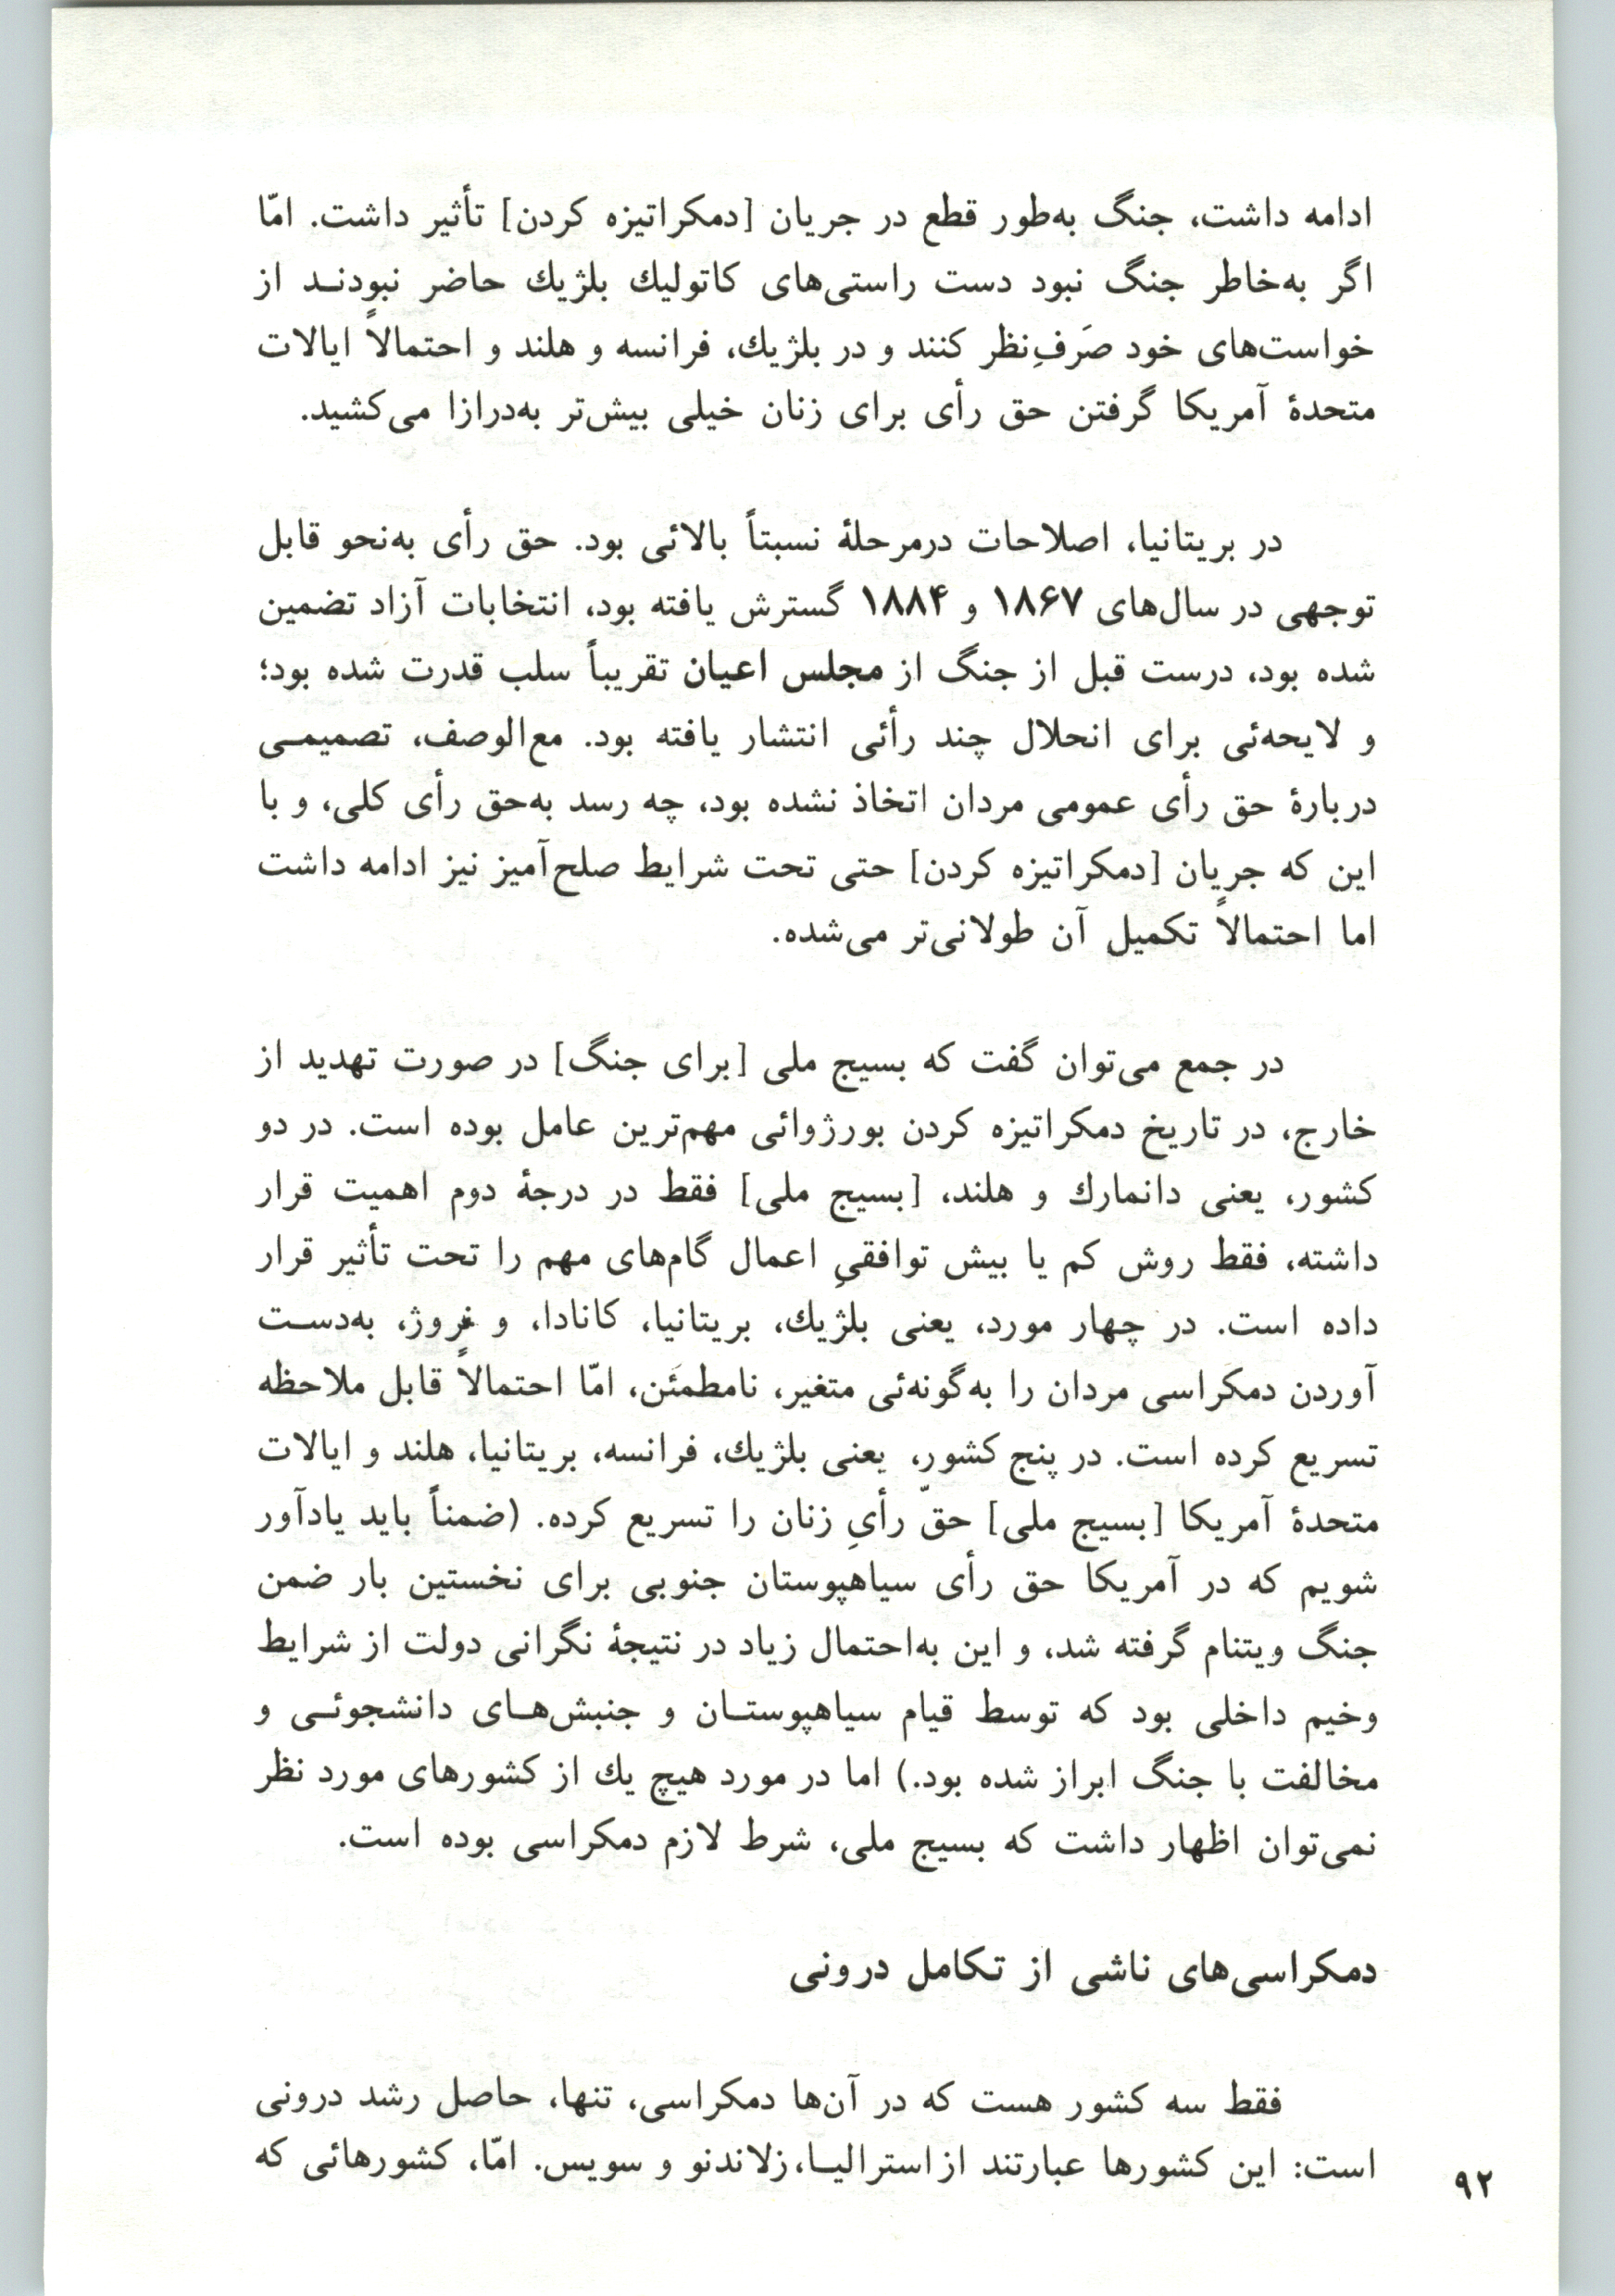 ادامه داشت، جنگ به‌طور قطع در جریان [دمکراتیزه کردن] تأثیر داشت. امّا
اگر به‌خاطر جنگ نبود دست راستی‌های کاتولیك بلژیك حاضر نبودنـد از
خواست‌های خود صَرفِ‌نظر کنند و در بلژیك، فرانسه و هلند و احتمالاً ایالات
متحدهٔ آمریکا گرفتن حق رأی برای زنان خیلی بیش‌تر به‌درازا می‌کشید.
در بریتانیا، اصلاحات درمرحلهٔ نسبتاً بالائی بود. حق رأی به‌نحو قابل
توجهی در سال‌های ۱۸۶۷ و ۱۸۸۴ گسترش یافته بود، انتخابات آزاد تضمین
شده بود، درست قبل از جنگ از مجلس اعیان تقریباً سلب قدرت شده بود؛
و لایحه‌ئی برای انحلال چند رأئی انتشار یافته بود. مع‌الوصف، تصمیمـی
دربارهٔ حق رأی عمومی مردان اتخاذ نشده بود، چه رسد به‌حق رأی کلی، و با
این که جریان [دمکراتیزه کردن] حتی تحت شرایط صلح‌آمیز نیز ادامه داشت
اما احتمالاً تکمیل آن طولانی‌تر می‌شده.
در جمع می‌توان گفت که بسیج ملی [برای جنگ] در صورت تهدید از
خارج، در تاریخ دمکراتیزه کردن بورژوائی مهم‌ترین عامل بوده است. در دو
کشور، یعنی دانمارك و هلند، [بسیج ملی] فقط در درجهٔ دوم اهمیت قرار
داشته، فقط روش کم یا بیش توافقیِ اعمال گام‌های مهم را تحت تأثیر قرار
داده است. در چهار مورد، یعنی بلژیك، بریتانیا، کانادا، و نروژ، به‌دسـت
آوردن دمکراسی مردان را به‌گونه‌ئی متغیر، نامطمئَن، امّا احتمالاً قابل ملاحظه
تسریع کرده است. در پنج کشور، یعنی بلژیك، فرانسه، بریتانیا، هلند و ایالات
متحدهٔ آمریکا [بسیج ملی] حقّ رأیِ زنان را تسریع کرده. (ضمناً باید یادآور
شویم که در آمریکا حق رأی سیاهپوستان جنوبی برای نخستین بار ضمن
جنگ ویتنام گرفته شد، و این به‌احتمال زیاد در نتیجهٔ نگرانی دولت از شرایط
وخیم داخلی بود که توسط قیام سیاهپوستـان و جنبش‌هـای دانشجوئـی و
مخالفت با جنگ ابراز شده بود.) اما در مورد هیچ یك از کشورهای مورد نظر
نمی‌توان اظهار داشت که بسیج ملی، شرط لازم دمکراسی بوده است.
دمکراسی‌های ناشی از تکامل درونی
فقط سه کشور هست که در آن‌ها دمکراسی، تنها، حاصل رشد درونی
است: این کشورها عبارتند از استرالیـا، زلاندنو و سویس. امّا، کشورهائی که
۹۲